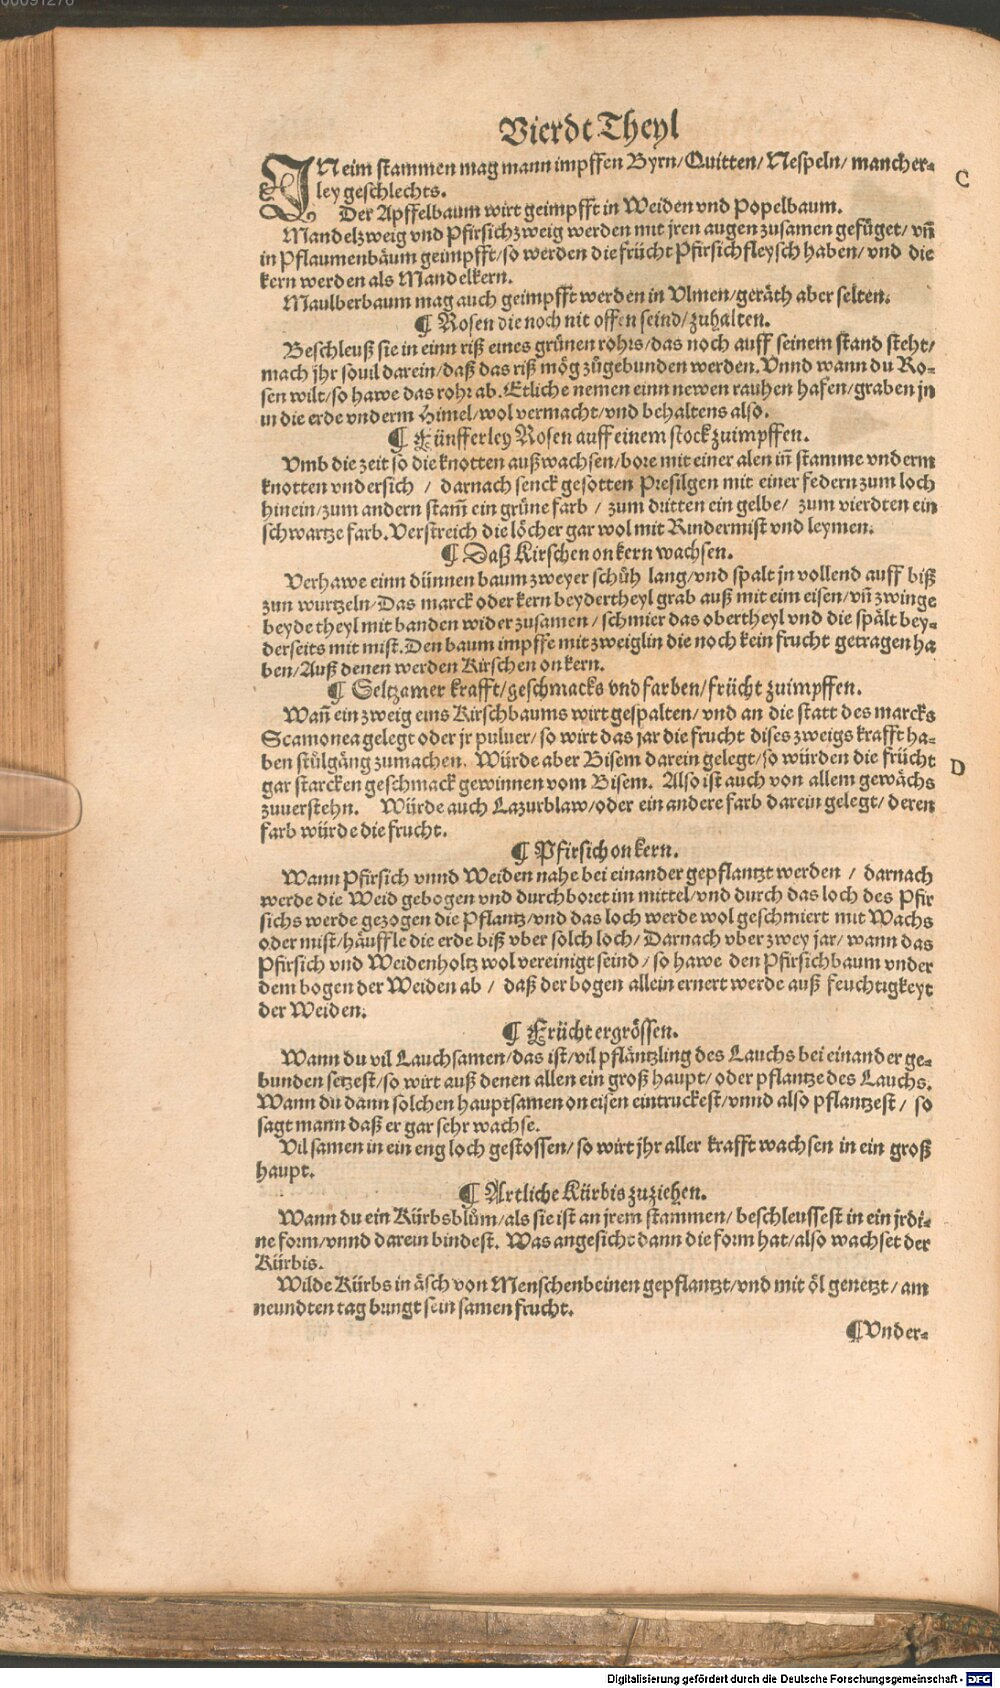 00091276
Vierdt Theyl
IN eim stammen mag mann impffen Byrn/Quitten/Nespeln/mancher⸗
ley geschlechts.
C
Der Apffelbaum wirt geimpfft in Weiden vnd Popelbaum.
Mandelzweig vnd Pfirsichzweig werden mit jren augen zusamen gefüget/vñ
in Pflaumenbäum geimpfft/so werden die frücht Pfirsichfleysch haben/vnd die
kern werden als Mandelkern.
Maulberbaum mag auch geimpfft werden in Vlmen/geräth aber selten.
¶ Rosen die noch nit offen seind/zuhalten.
Beschleuß sie in einn riß eines grünen rohrs/das noch auff seinem stand steht/
mach jhr souil darein/daß das riß mög zůgebunden werden. Vnnd wann du Ro⸗
sen wilt/so hawe das rohr ab. Etliche nemen einn newen rauhen hafen/graben jn
in die erde vnderm Himel/wol vermacht/vnd behaltens also.
¶ Fünfferley Rosen auff einem stock zuimpffen.
Vmb die zeit so die knotten außwachsen/bore mit einer alen iñ stamme vnderm
knotten vndersich / darnach senck gesotten Presilgen mit einer federn zum loch
hinein/zum andern stam̃ ein grüne farb / zum dritten ein gelbe/ zum vierdten ein
schwartze farb. Verstreich die löcher gar wol mit Rindermist vnd leymen.
¶ Daß Kirschen on kern wachsen.
Verhawe einn dünnen baum zweyer schůh lang/vnd spalt jn vollend auff biß
zun wurtzeln/Das marck oder kern beydertheyl grab auß mit eim eisen/vñ zwinge
beyde theyl mit banden wider zusamen / schmier das obertheyl vnd die spält bey⸗
derseits mit mist. Den baum impffe mit zweiglin die noch kein frucht getragen ha
ben/Auß denen werden Kirschen on kern.
¶ Seltzamer krafft/geschmacks vnd farben/frücht zuimpffen.
Wañ ein zweig eins Kirschbaums wirt gespalten/vnd an die statt des marcks
Scamonea gelegt oder jr puluer/so wirt das jar die frucht dises zweigs krafft ha⸗
ben stůlgäng zumachen. Würde aber Bisem darein gelegt/so würden die frücht
D
gar starcken geschmack gewinnen vom Bisem. Also ist auch von allem gewächs
zuuerstehn. Würde auch Lazurblaw/oder ein andere farb darein gelegt/deren
farb würde die frucht.
¶ Pfirsich on kern.
Wann Pfirsich vnnd Weiden nahe bei einander gepflantzt werden / darnach
werde die Weid gebogen vnd durchboret im mittel/vnd durch das loch des Pfir
sichs werde gezogen die Pflantz/vnd das loch werde wol geschmiert mit Wachs
oder mist/häuffle die erde biß vber solch loch/Darnach vber zwey jar/wann das
Pfirsich vnd Weidenholtz wol vereinigt seind/so hawe den Pfirsichbaum vnder
dem bogen der Weiden ab / daß der bogen allein ernert werde auß feuchtigkeyt
der Weiden.
¶ Frücht ergrössen.
Wann du vil Lauchsamen/das ist/vil pfläntzling des Lauchs bei einander ge⸗
bunden setzest/so wirt auß denen allen ein groß haupt/oder pflantze des Lauchs.
Wann du dann solchen hauptsamen on eisen eintruckest/vnnd also pflantzest / so
sagt mann daß er gar sehr wachse.
Vil samen in ein eng loch gestossen/so wirt jhr aller krafft wachsen in ein groß
haupt.
¶ Artliche Kürbis zuziehen.
Wann du ein Kürbsblům/als sie ist an jrem stammen/beschleussest in ein jrdi⸗
ne form/vnnd darein bindest. Was angesicht dann die form hat/also wachset der
Kürbis.
Wilde Kürbs in äsch von Menschenbeinen gepflantzt/vnd mit öl genetzt/am
neundten tag bringt sein samen frucht.
¶ Vnder⸗
Digitalisierung gefördert durch die Deutsche Forschungsgemeinschaft - DFG